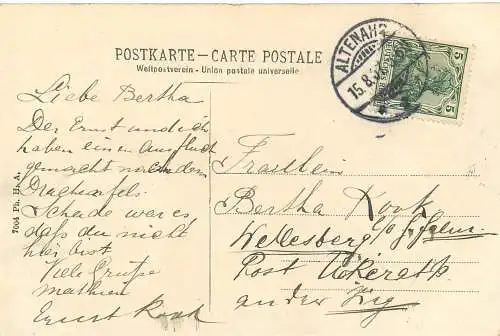 POSTKARTE – CARTE POSTALE
Weltpostverein - Union postale universelle
ALTENAHR
15.8.
5
5
Liebe Bertha
Der Ernst und ich
haben einen Ausfluch
gemacht nach dem
Drachenfels.
Schade war es
daß du nicht
hier bist
Viele Grüße
Mathien
Ernst Kook
7004 Ph. H. A.
Fraulein
Bertha Kook
Wellesberg
Post Uckerath
an der Sieg